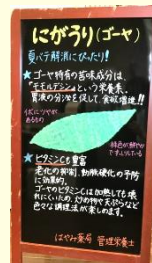 にがうり(ゴーヤ)
夏バテ解消にぴったり!
★ゴーヤ特有の苦味成分は、
「モモルデシン」という栄養素。
胃液の分泌を促して、食欲増進!!
イボにツヤが
あるもの
緑色が鮮やか
★ビタミンCも豊富
老化の抑制、動脈硬化の予防
に効果的。
ゴーヤのビタミンCは加熱しても壊
れにくいため、炒め物や天ぷらなど
色々な調理法が楽しめます。
はやみ薬局 管理栄養士